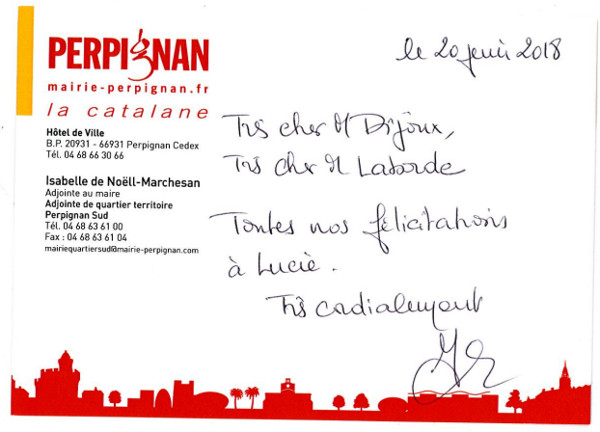 PERPIGNAN
mairie-perpignan.fr
la catalane
Hôtel de Ville
B.P. 20931 - 66931 Perpignan Cedex
Tél. 04 68 66 30 66
Isabelle de Noëll-Marchesan
Adjointe au maire
Adjointe de quartier territoire
Perpignan Sud
Tél. 04 68 63 61 00
Fax : 04 68 63 61 04
mairiequartiersud@mairie-perpignan.com
le 20 juin 2018
Très cher M Dijoux,
Très cher M Laborde
Toutes nos félicitations
à Lucie.
Très cordialement